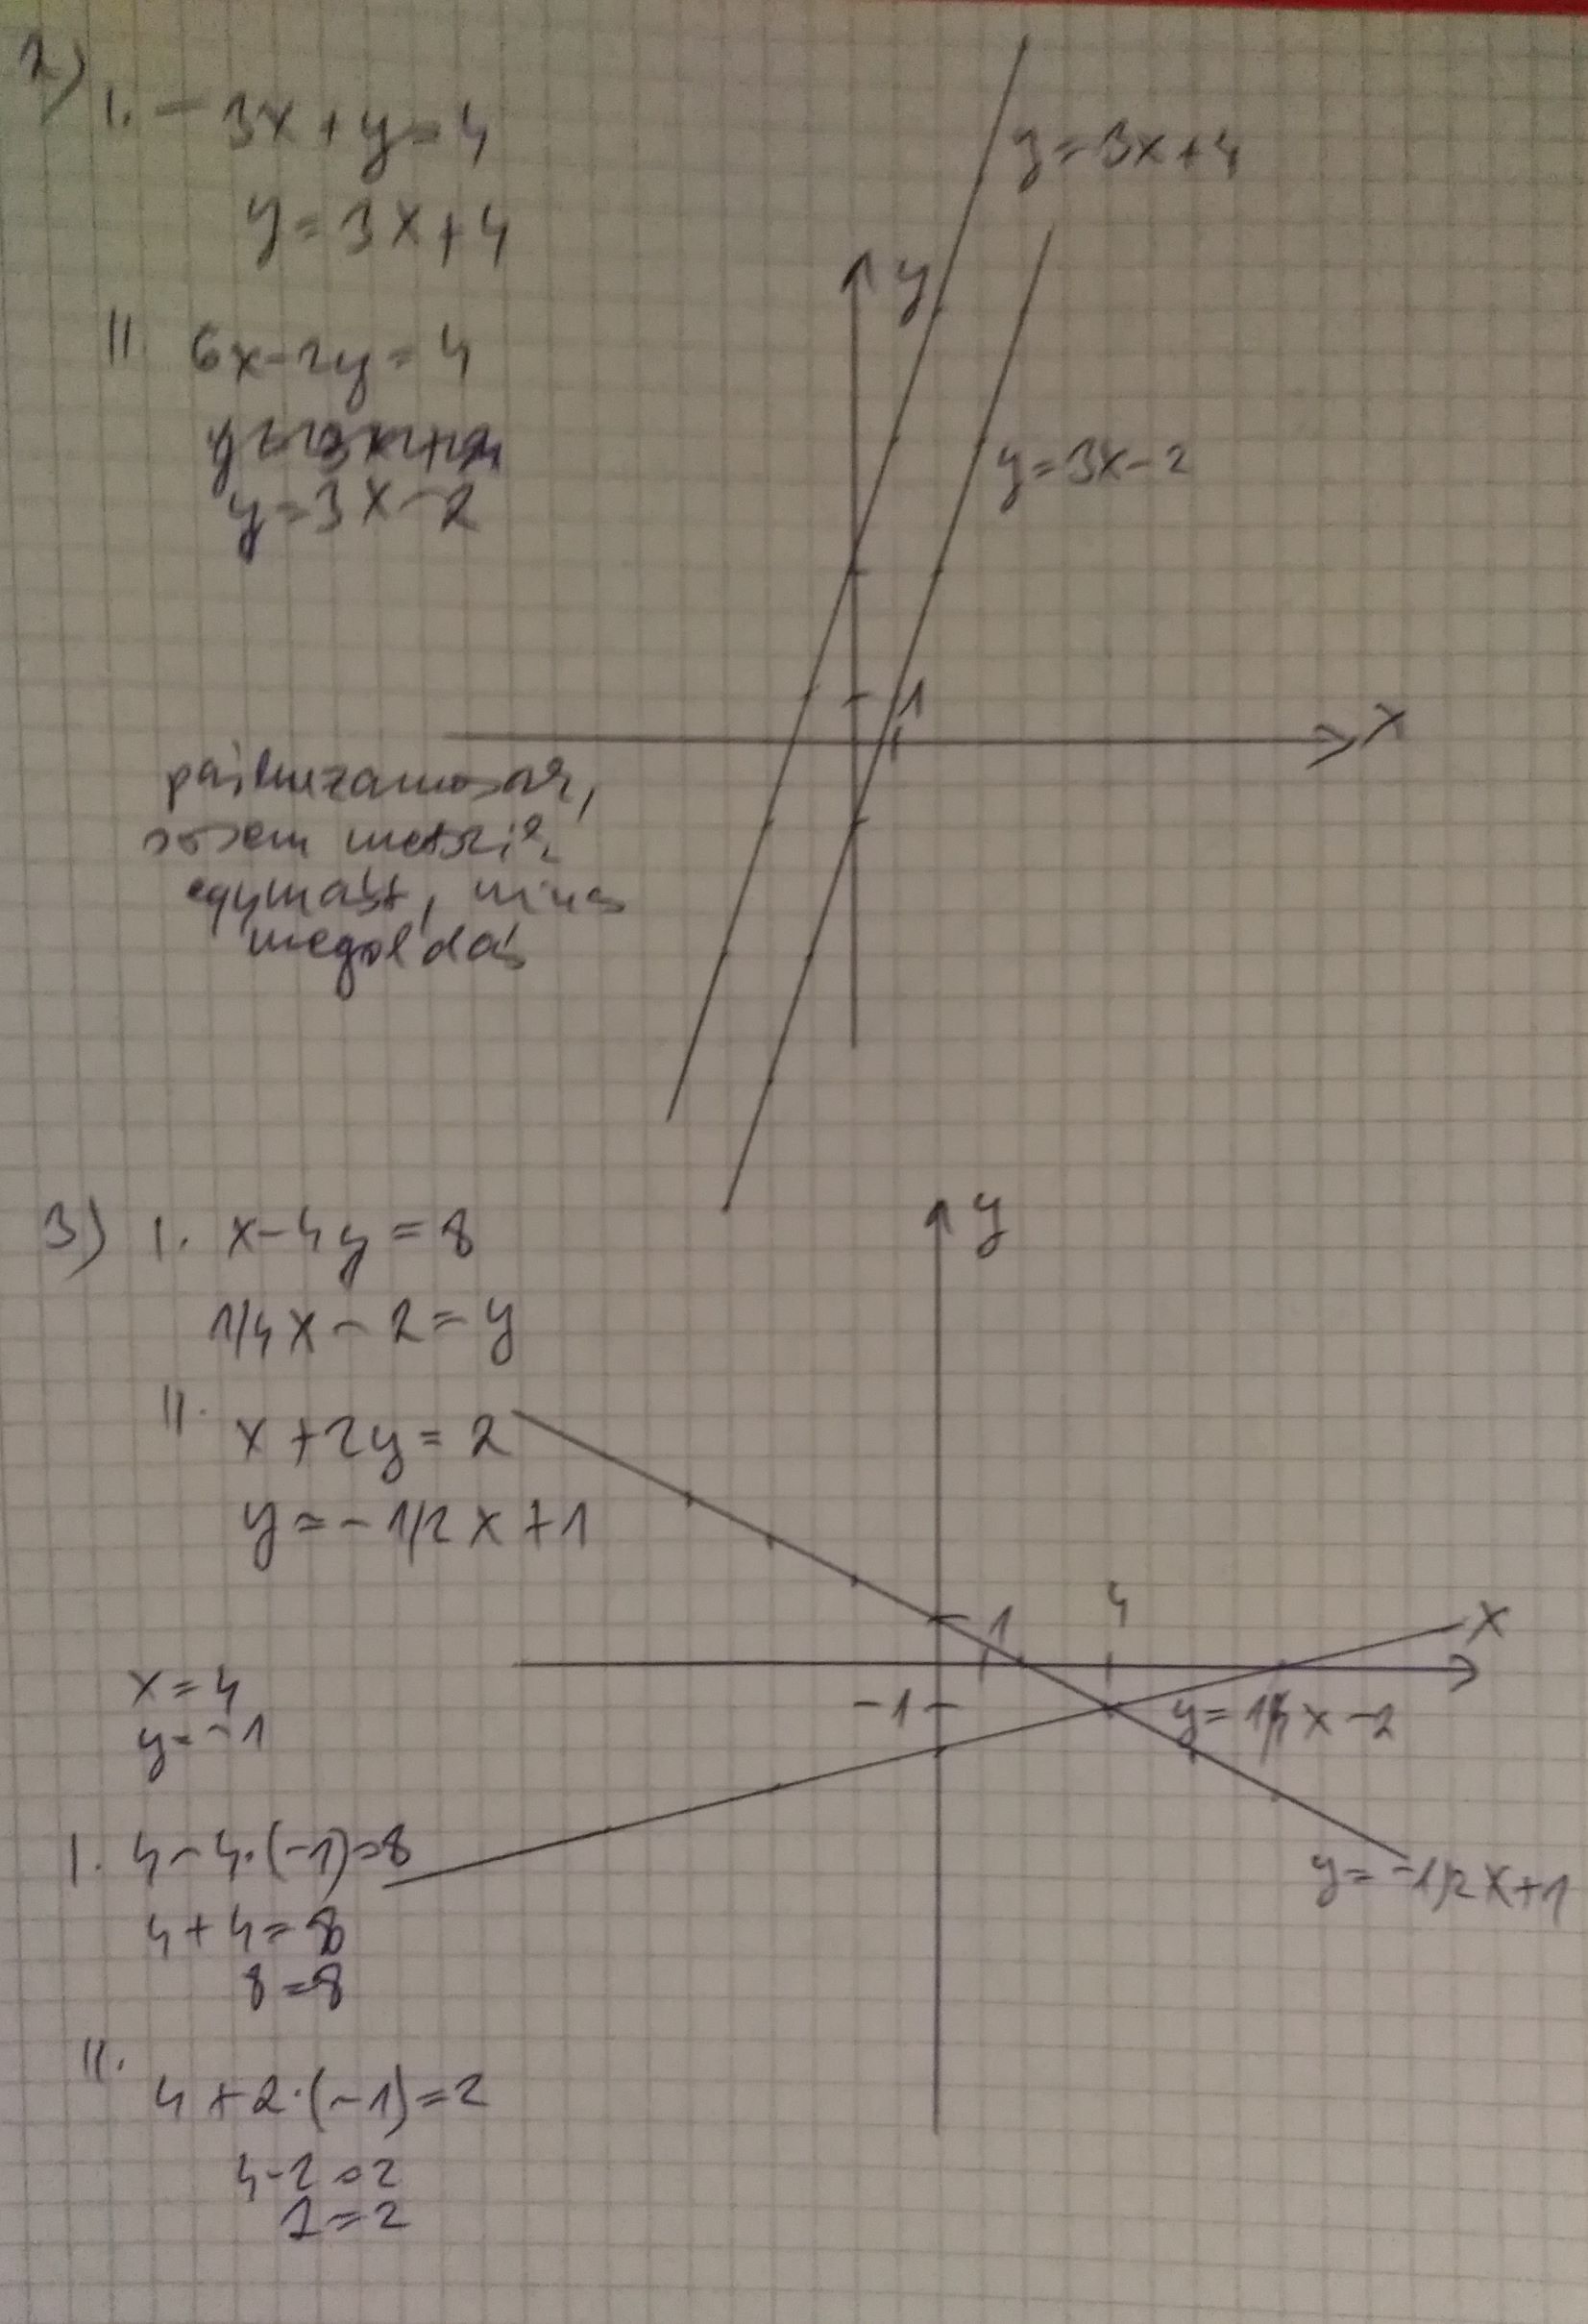 2)
I. -3x+y=4
y=3x+4
II. 6x-2y=4
y=3x-2
y
y=3x+4
y=3x-2
1
x
párhuzamosak,
sosem metszik
egymást, nincs
megoldás
3) I. x-4y=8
1/4x-2=y
II. x+2y=2
y=-1/2x+1
y
1
4
x
-1
y=1/4x-2
y=-1/2x+1
x=4
y=-1
I. 4-4·(-1)=8
4+4=8
8=8
II. 4+2·(-1)=2
4-2=2
2=2